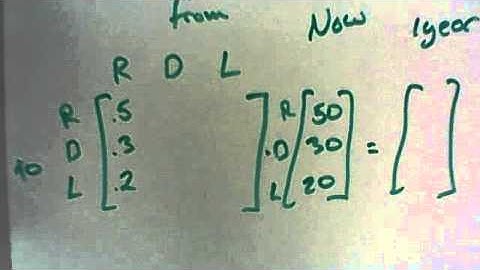 from Now 1year
R D L
R .5 R 50
D .3 . D 30 =
to L .2 L 20